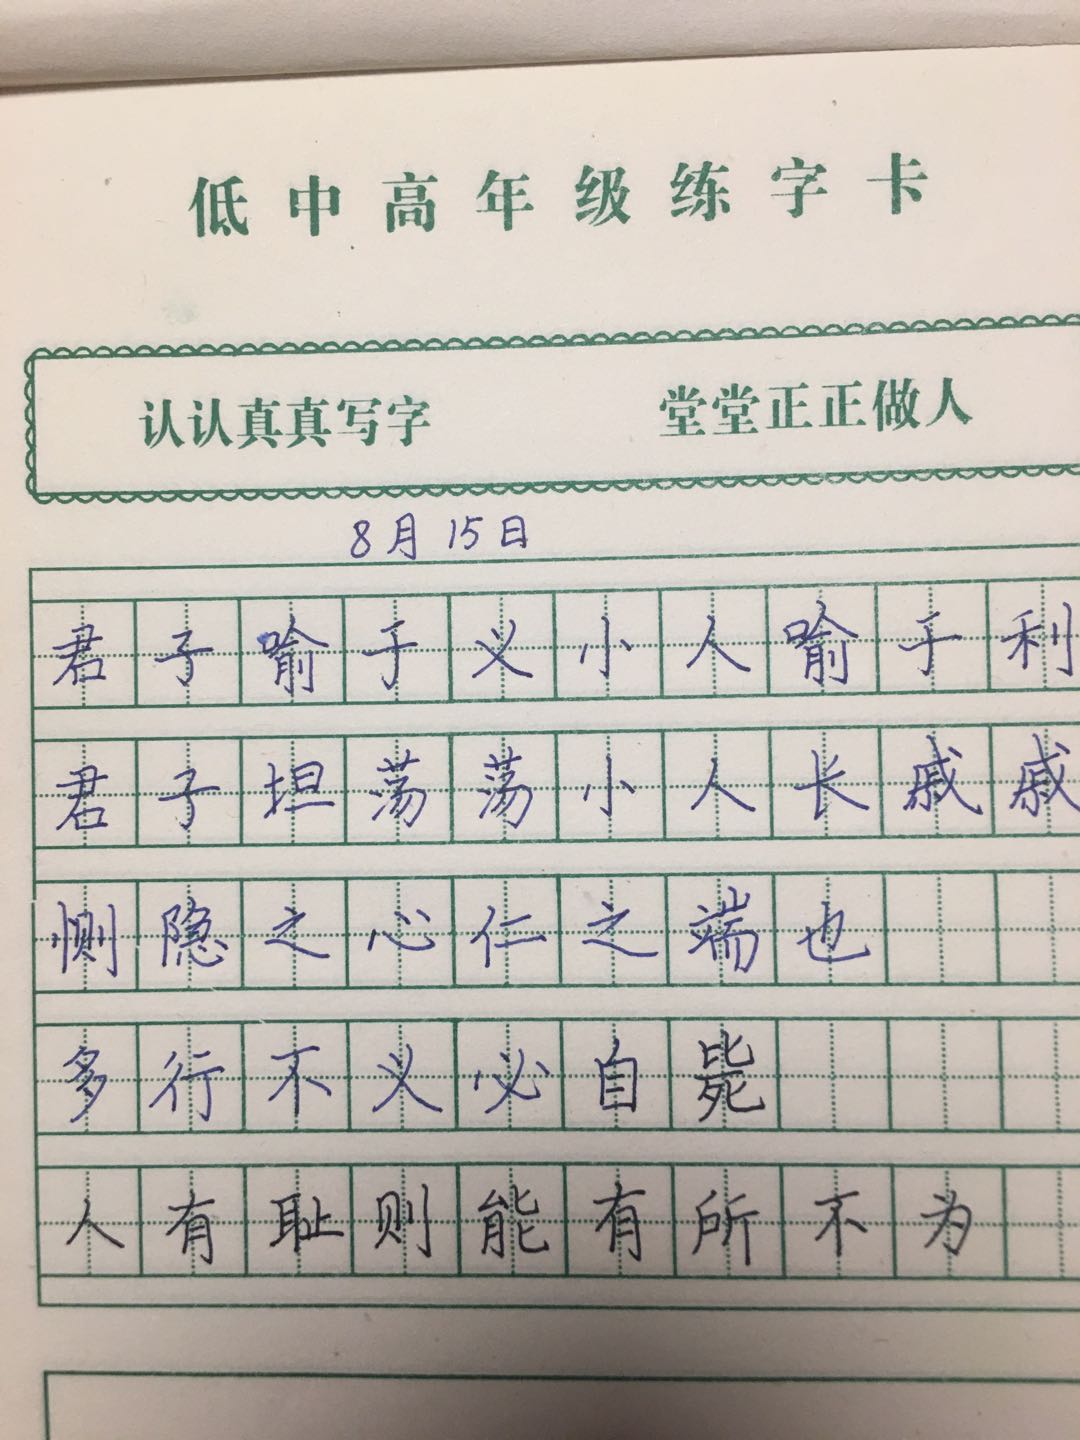 低中高年级练字卡
认认真真写字 堂堂正正做人
8月15日
君子喻于义小人喻于利
君子坦荡荡小人长戚戚
恻隐之心仁之端也
多行不义必自毙
人有耻则能有所不为